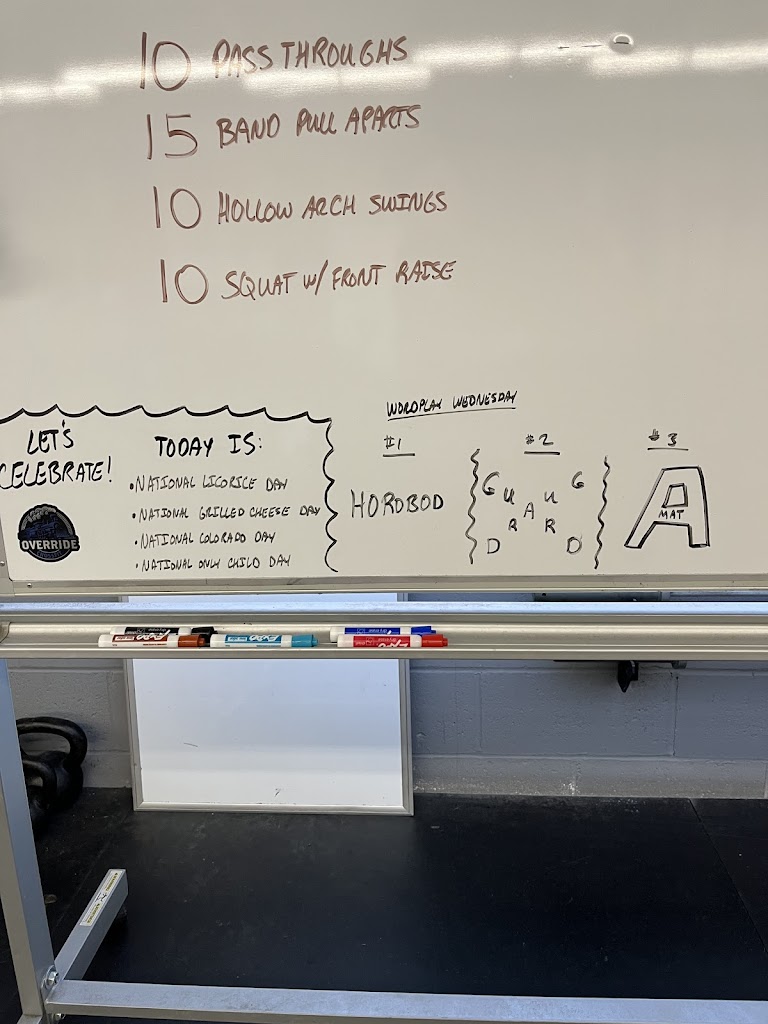 10 PASS THROUGHS
15 BAND PULL APARTS
10 HOLLOW ARCH SWINGS
10 SQUAT W/ FRONT RAISE
LET'S
CELEBRATE!
OVERRIDE
TODAY IS:
•NATIONAL LICORICE DAY
•NATIONAL GRILLED CHEESE DAY
•NATIONAL COLORADO DAY
•NATIONAL ONLY CHILD DAY
WORDPLAY WEDNESDAY
#1
HOROBOD
#2
G U A R D
G U A R D
#3
A
MAT
EXPO